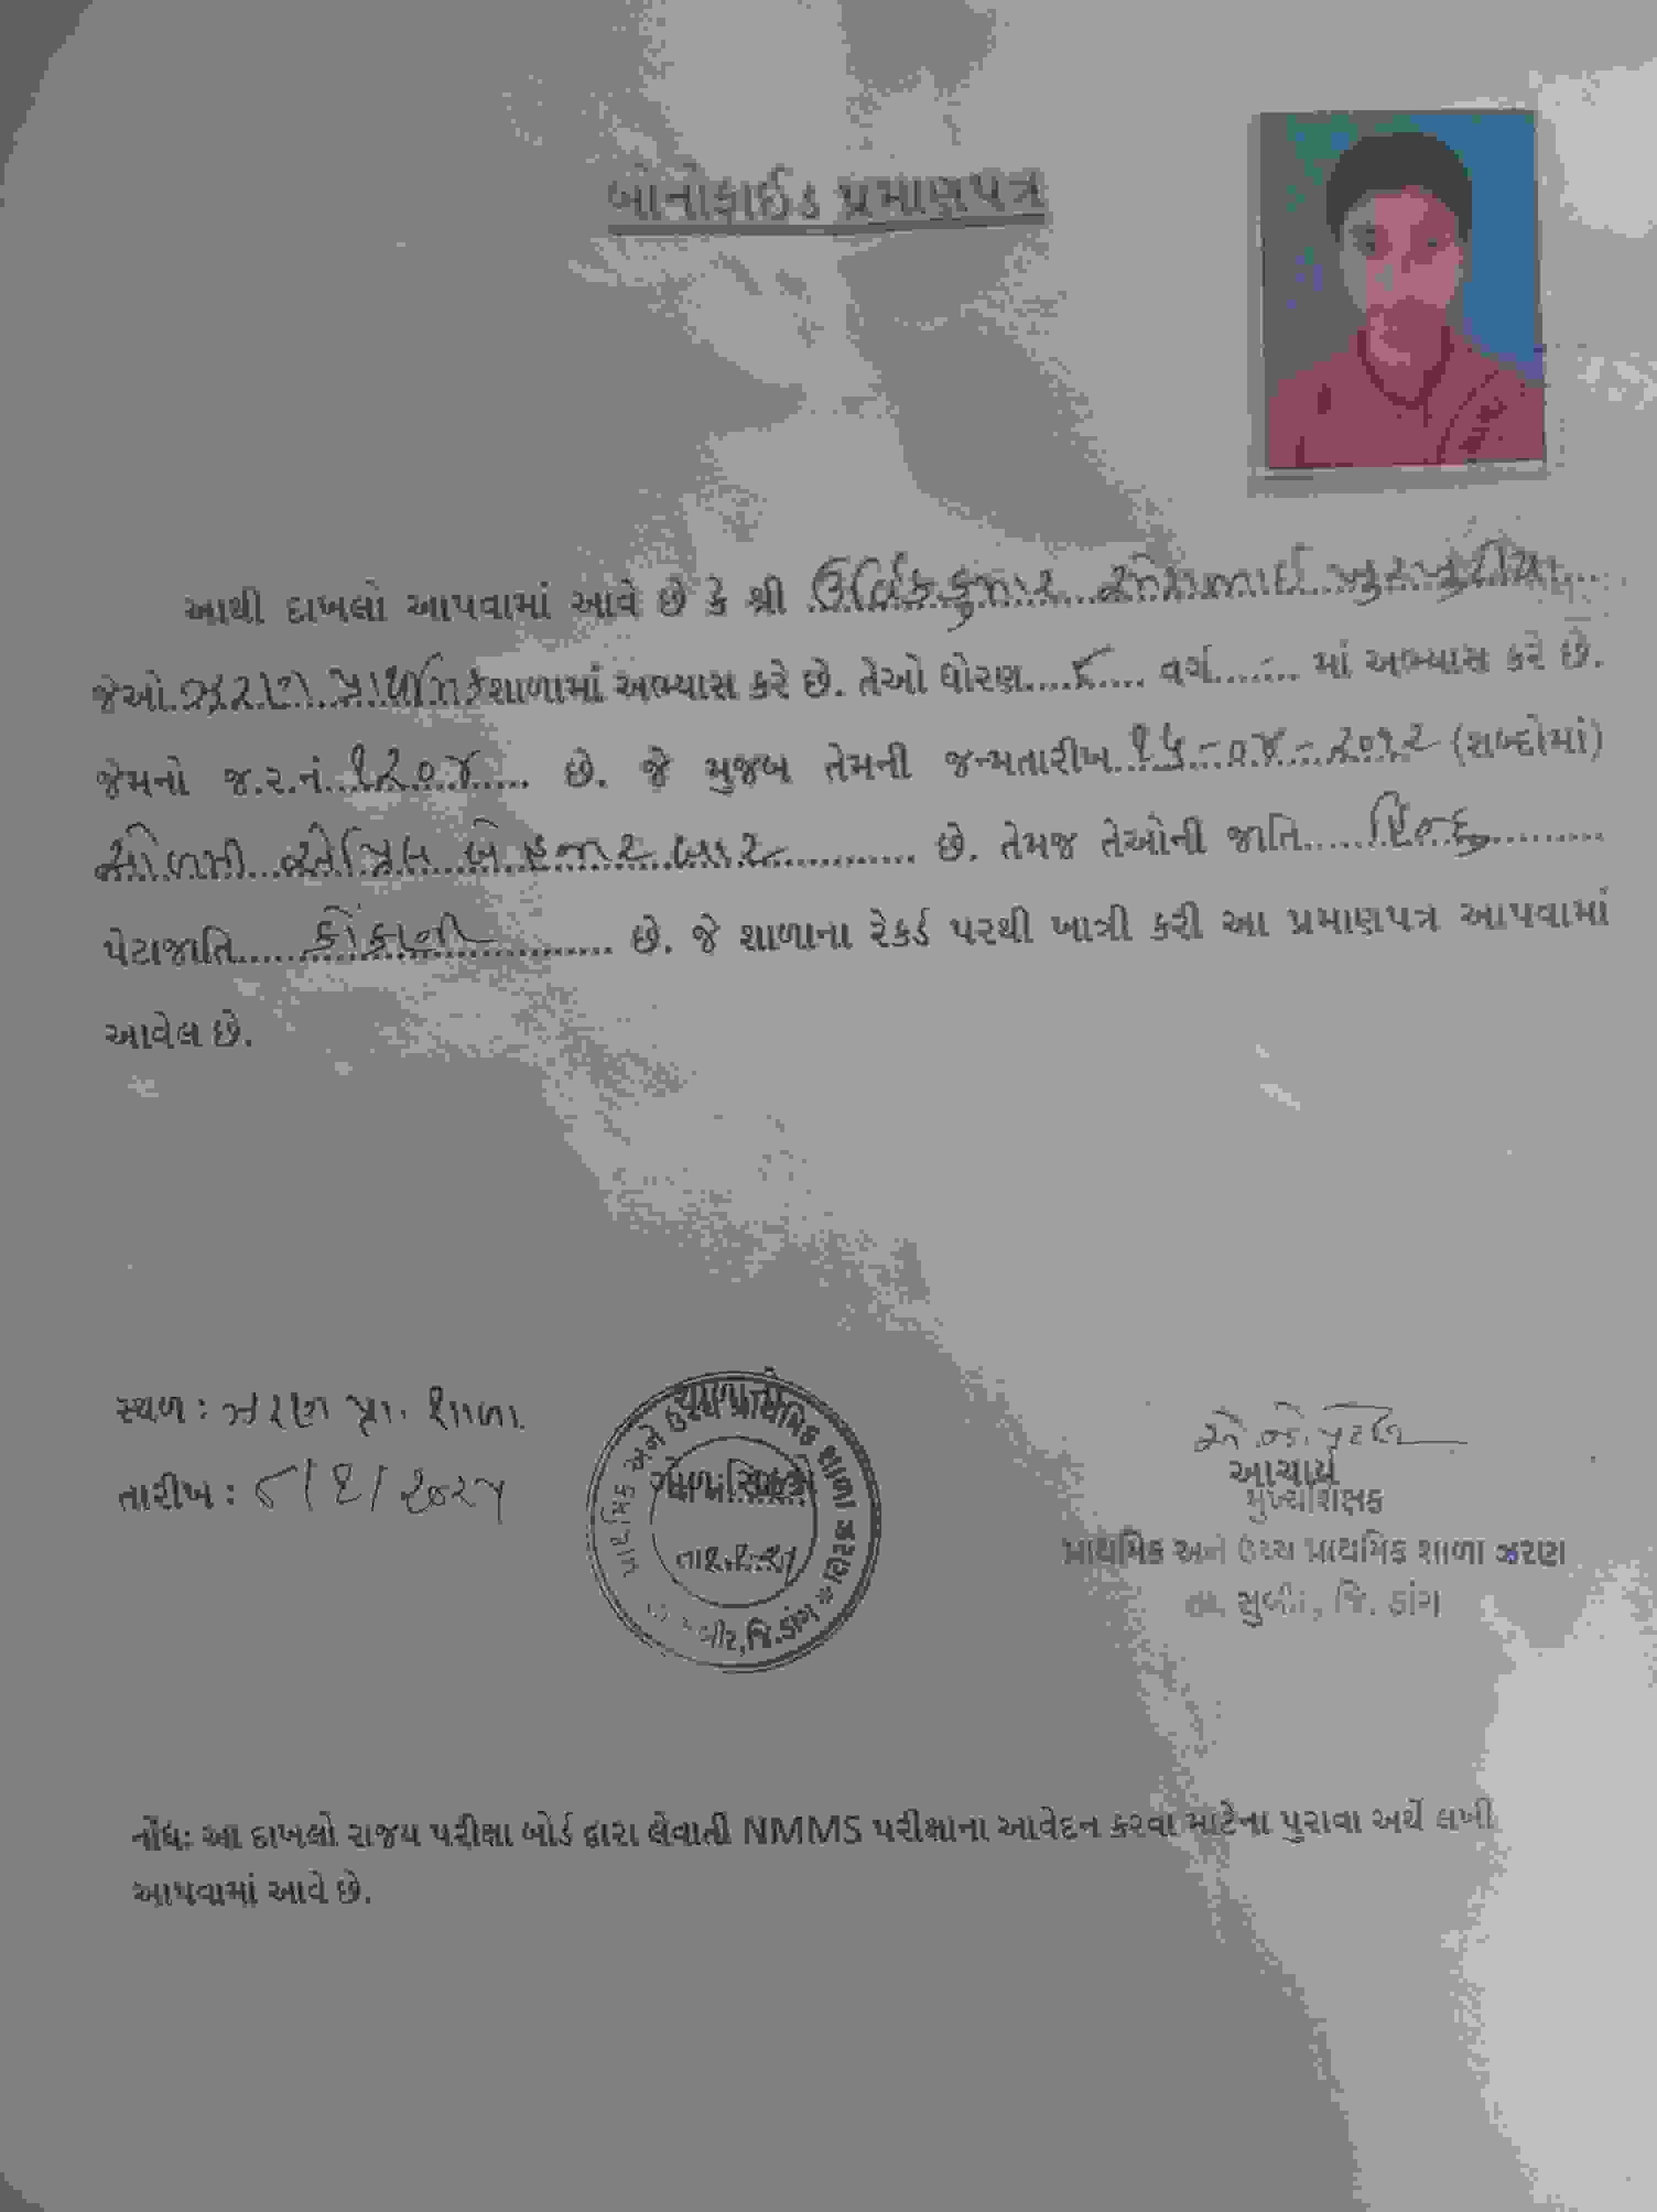 બોનોફાઈડ પ્રમાણપત્ર
આથી દાખલો આપવામાં આવે છે કે શ્રી ઉર્વિકકુમાર
જેઓ ઝરણ પ્રાથમિક શાળામાં અભ્યાસ કરે છે. તેઓ ધોરણ....૮.... વર્ગ....... માં અભ્યાસ કરે છે.
જેમનો જ.ર.નં.૧૨૦૪.... છે. જે મુજબ તેમની જન્મતારીખ -૦૪-૨૦૧૨ (શબ્દોમાં)
સોળમી એપ્રિલ બે હજાર બાર............ છે. તેમજ તેઓની જાતિ.....હિન્દુ..........
પેટાજાતિ.....કોંકાની......... છે. જે શાળાના રેકર્ડ પરથી ખાત્રી કરી આ પ્રમાણપત્ર આપવામાં
આવેલ છે.
સ્થળ : ઝરણ પ્રા. શાળા
તારીખ : ૮/૧/૨૦૨૫
પ્રાથમિક અને ઉચ્ચ પ્રાથમિક શાળા ઝરણ * જિ.ડાંગ
આચાર્ય
મુખ્યશિક્ષક
પ્રાથમિક અને ઉચ્ચ પ્રાથમિક શાળા ઝરણ
જિ. ડાંગ
નોંધ: આ દાખલો રાજ્ય પરીક્ષા બોર્ડ દ્વારા લેવાતી NMMS પરીક્ષાના આવેદન કરવા માટેના પુરાવા અર્થે લખી
આપવામાં આવે છે.